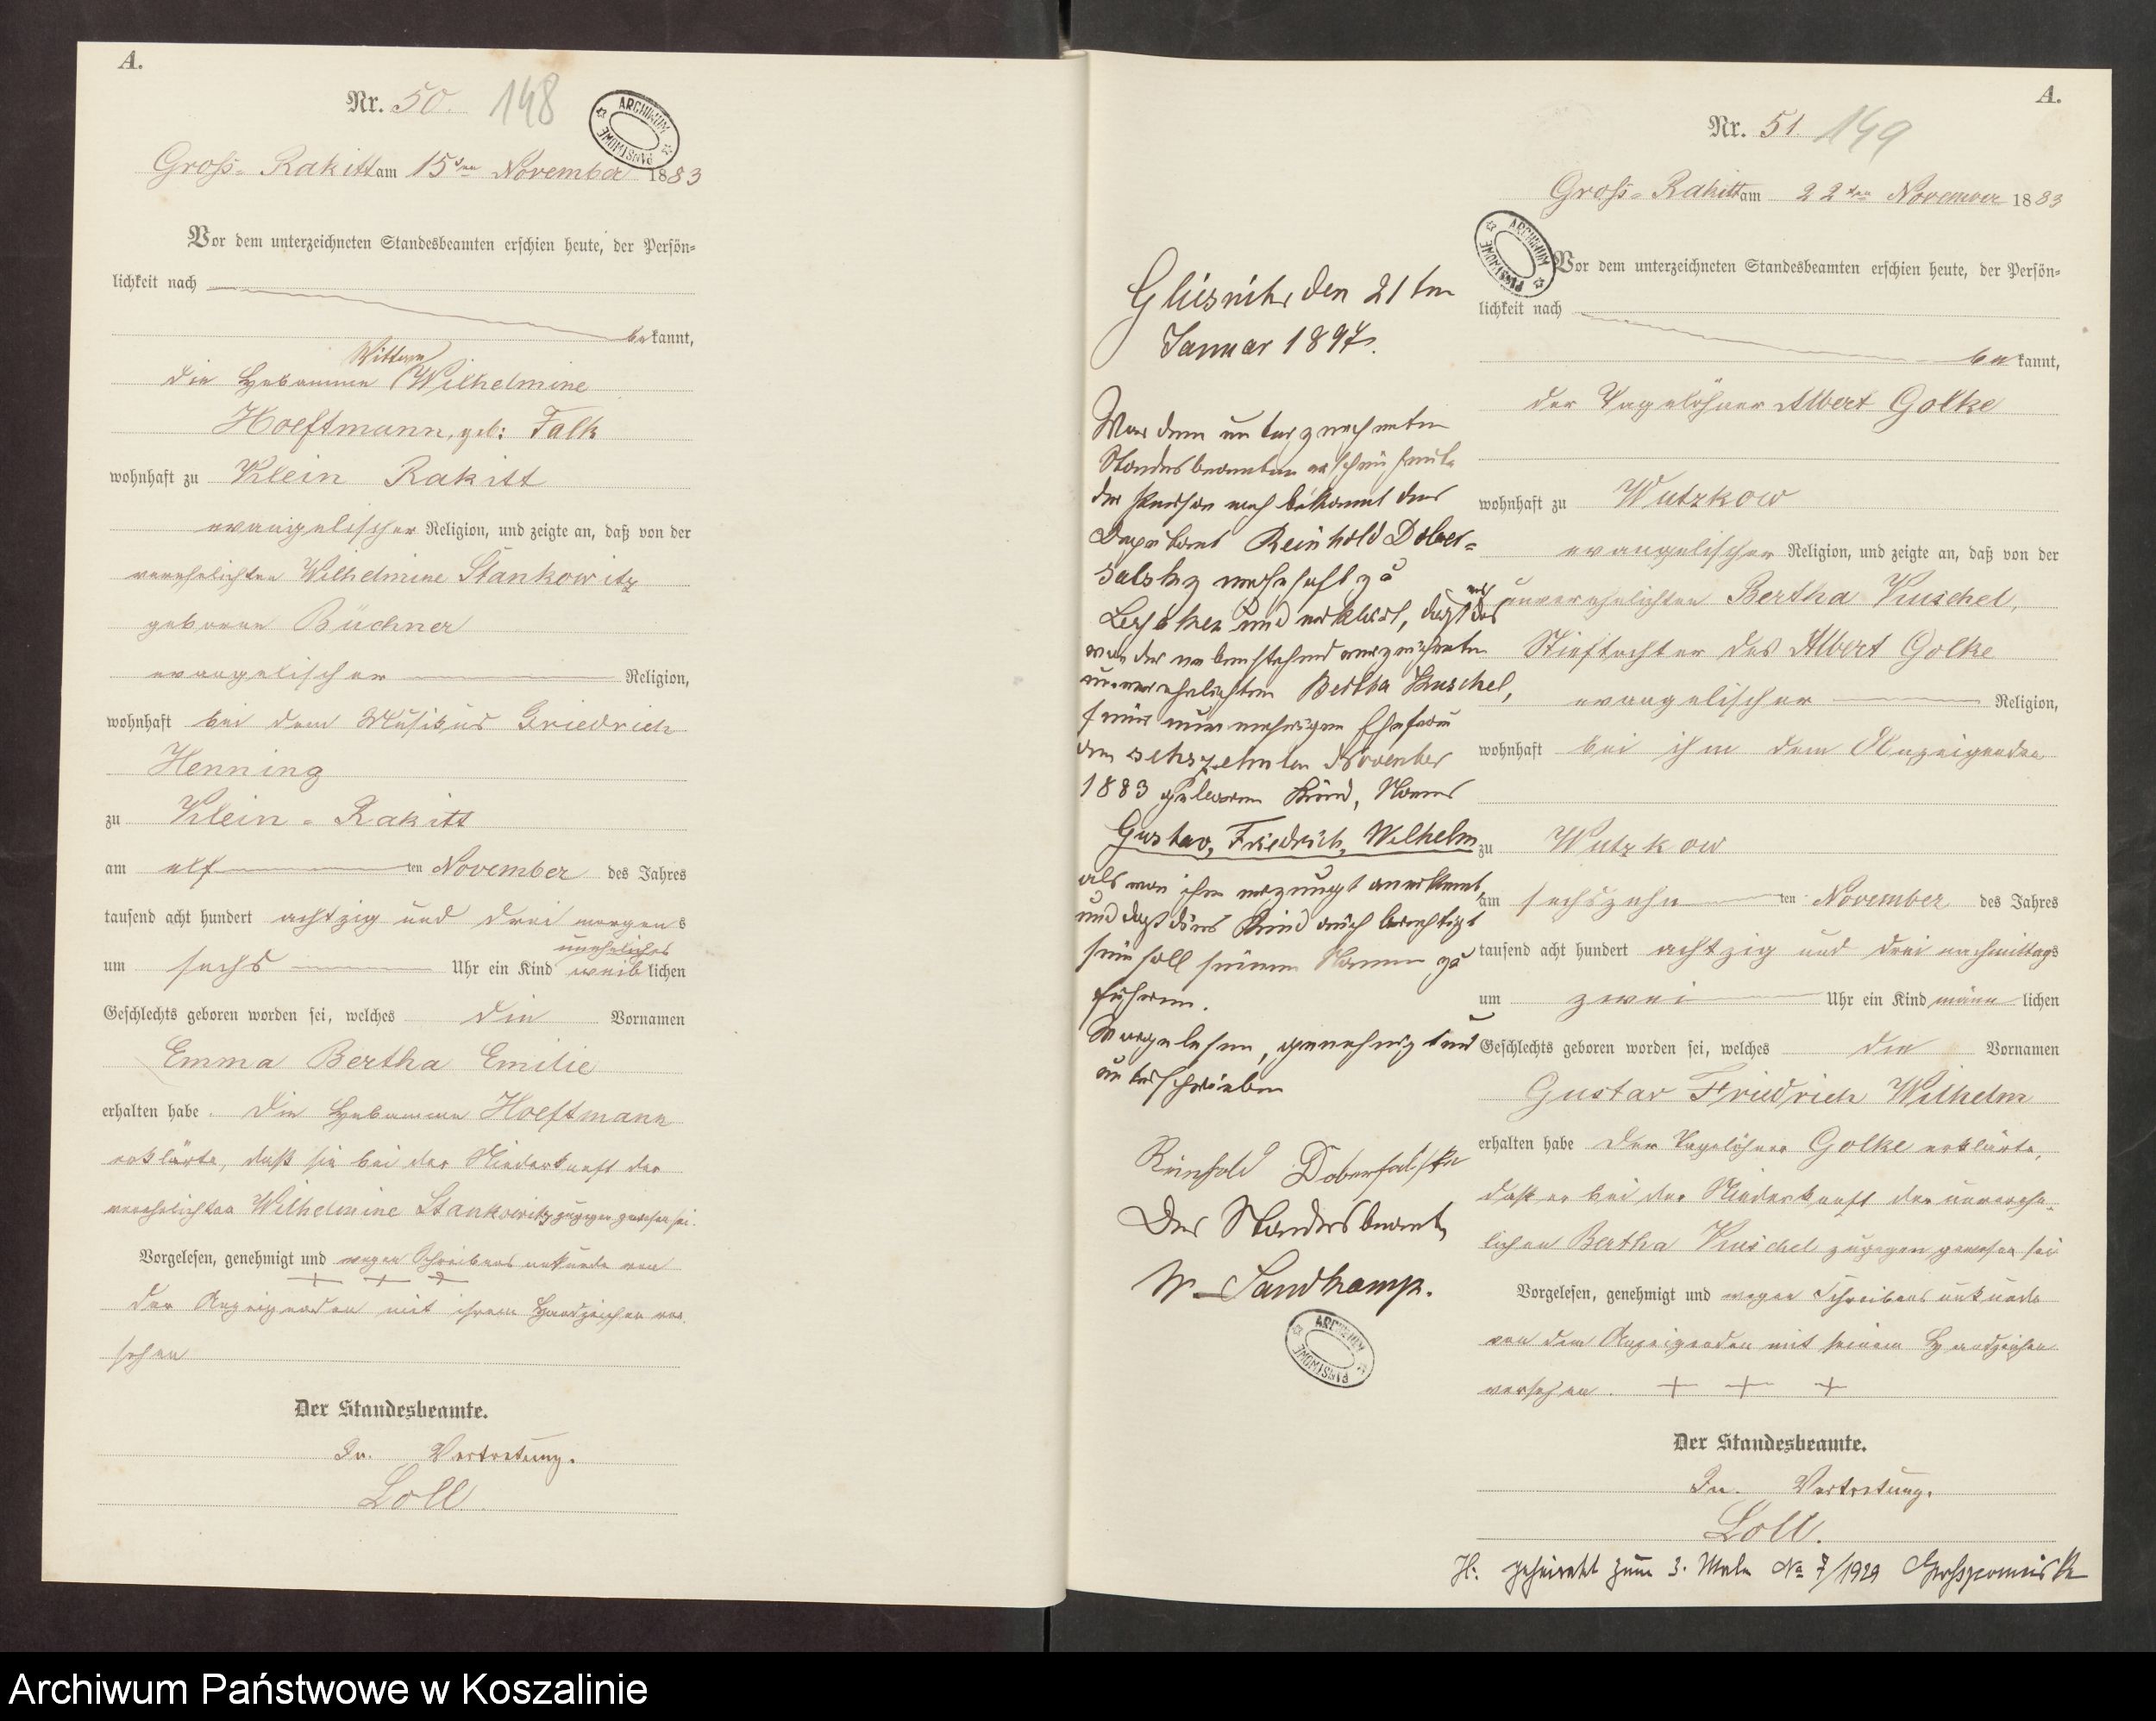 A.
Nr. 50. 148
ARCHIWUM PAŃSTWOWE
Gross-Rakitt am 15ten November 1883
Vor dem unterzeichneten Standesbeamten erschien heute, der Persön-
lichkeit nach
bekannt,
Wittwe
die Hebamme Wilhelmine
Hoeftmann, geb: Falk
wohnhaft zu Klein Rakitt
evangelischer Religion, und zeigte an, daß von der
verehelichten Wilhelmine Stankowitz
geborene Büchner
evangelischer Religion,
wohnhaft bei dem Musikus Friedrich
Henning
zu Klein-Rakitt
am elf ten November des Jahres
tausend acht hundert achtzig und drei morgens
uneheliches
um sechs Uhr ein Kind weiblichen
Geschlechts geboren worden sei, welches die Vornamen
Emma Bertha Emilie
erhalten habe. Die Hebamme Hoeftmann
erklärte, daß sie bei der Niederkunft der
verehelichten Wilhelmine Stankowitz zugegen gewesen sei.
Vorgelesen, genehmigt und wegen Schreibens unkunde von
+ + +
der Anzeigenden mit ihrem Handzeichen ver-
sehen
Der Standesbeamte.
In Vertretung.
Loll.
Gliesnitz, den 21ten
Januar 1897.
Vor dem unterzeichneten
Standesbeamten erschien heute
der Person nach bekannt der
Reinhold Dober-
salsky wohnhaft zu
und erklärt, daß er das
von der nebenstehend verzeichneten
unverehelichten Bertha Kuschel,
seine nunmehrigen Ehefrau
am sechszehnten November
1883 geborene Kind, Namens
Gustav, Friedrich, Wilhelm
als von ihm erzeugt anerkennt,
und daß dies Kind auch berechtigt
sein soll seinen Namen zu
führen.
Vorgelesen, genehmigt und
unterschrieben
Reinhold Dobersalske
Der Standesbeamte
W. Sandkamp.
ARCHIWUM PAŃSTWOWE
A.
Nr. 51. 149
Gross-Rakitt am 22ten November 1883
ARCHIWUM PAŃSTWOWE
Vor dem unterzeichneten Standesbeamten erschien heute, der Persön-
lichkeit nach
bekannt,
der Tagelöhner Albert Golke
wohnhaft zu Wutzkow
evangelischer Religion, und zeigte an, daß von der
unverehelichten Bertha Kuschel,
Stieftochter des Albert Golke
evangelischer Religion,
wohnhaft bei ihm dem Anzeigenden
zu Wutzkow
am sechszehn ten November des Jahres
tausend acht hundert achtzig und drei nachmittags
um zwei Uhr ein Kind männlichen
Geschlechts geboren worden sei, welches die Vornamen
Gustav Friedrich Wilhelm
erhalten habe Der Tagelöhner Golke erklärte,
daß er bei der Niederkunft der unverehe-
lichen Bertha Kuschel zugegen gewesen sei
Vorgelesen, genehmigt und wegen Schreibens unkunde
von dem Anzeigenden mit seinem Handzeichen
versehen. + + +
Der Standesbeamte.
In Vertretung.
Loll.
H: geheiratet zum 3. Male No 7/1929
Archiwum Państwowe w Koszalinie